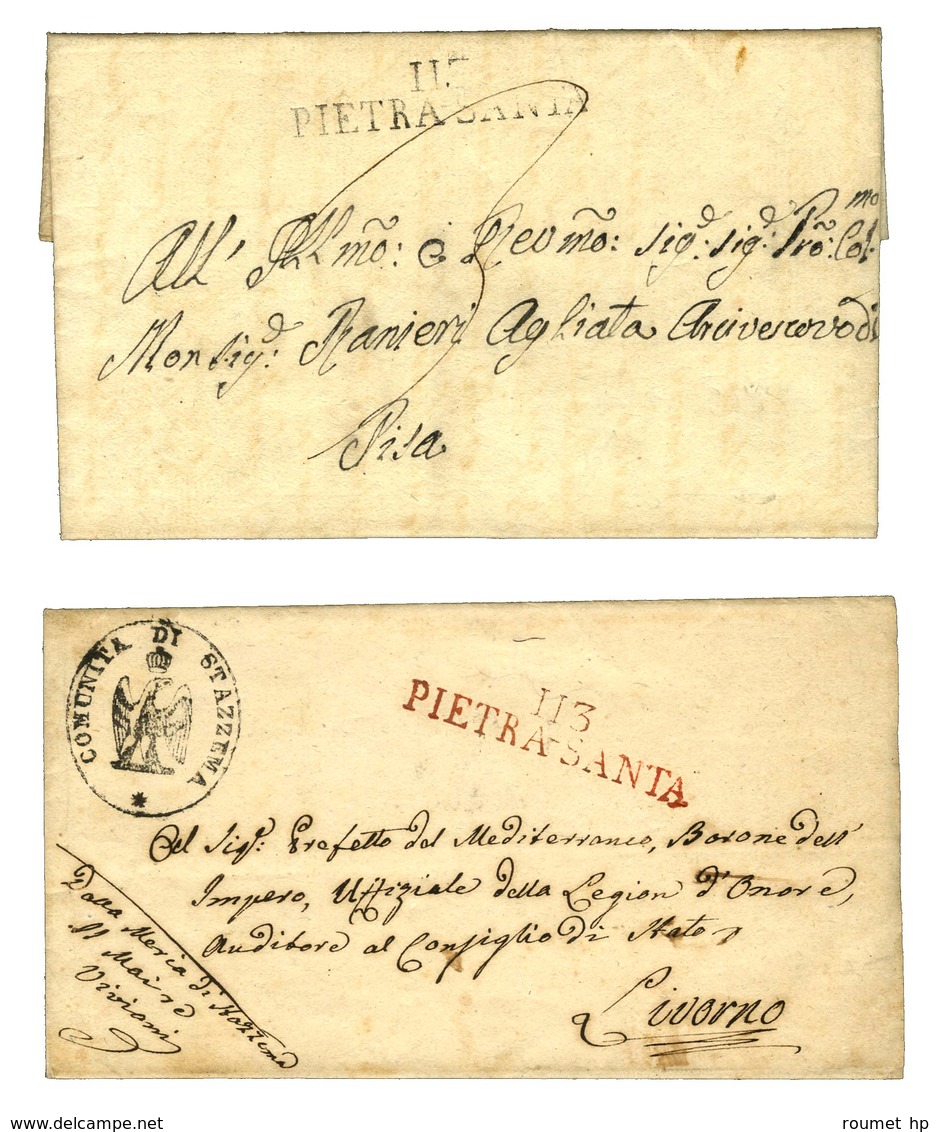 PIETRA-SANTA
All' Ill.mo: e Revmo: Sigd: Sigd: Prõ: Col:mo
Monsigd: Ranieri Agliata Arcivescovo di
Pisa
COMUNITÀ DI STAZZEMA
113
PIETRA-SANTA
Al Sigr: Prefetto del Mediterraneo, Barone dell'
Impero, Uffiziale della Legion d'Onore,
Auditore al Consiglio di Stato
Livorno
Dalla Meria di Stazzema
Il Maire
Viviani
delcampe.net
roumet hp